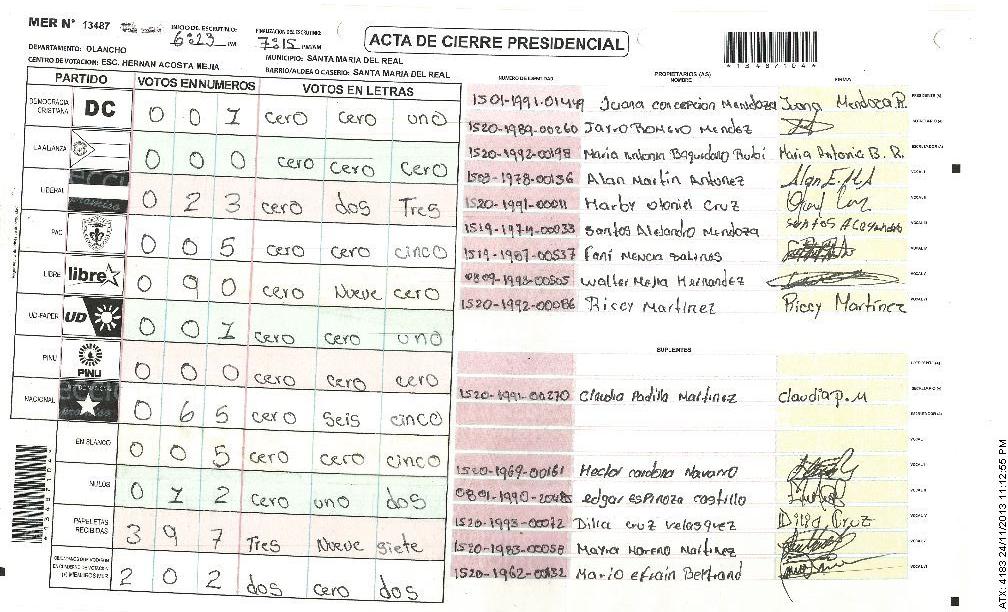 MER N° 13487
INICIO DE ESCRUTINIO:
6:23 PM
FINALIZACION DEL ESCRUTINIO:
7:15 PM/AM
ACTA DE CIERRE PRESIDENCIAL
DEPARTAMENTO: OLANCHO
MUNICIPIO: SANTA MARIA DEL REAL
CENTRO DE VOTACION: ESC. HERNAN ACOSTA MEJIA
BARRIO/ALDEA O CASERIO: SANTA MARIA DEL REAL
PARTIDO VOTOS EN NUMEROS VOTOS EN LETRAS
DEMOCRACIA CRISTIANA DC 0 0 1 cero cero uno
LA ALIANZA 0 0 0 cero cero cero
LIBERAL 0 2 3 cero dos Tres
PAC 0 0 5 cero cero cinco
LIBRE libre 0 9 0 cero Nueve cero
UD-FAPER UD 0 0 1 cero cero uno
PINU PINU 0 0 0 cero cero cero
NACIONAL 0 6 5 cero seis cinco
EN BLANCO 0 0 5 cero cero cinco
NULOS 0 1 2 cero uno dos
PAPELETAS RECIBIDAS 3 9 7 Tres Nueve siete
2 0 2 dos cero dos
NUMERO DE IDENTIDAD PROPIETARIOS (AS) NOMBRE FIRMA
Juana concepcion Mendoza Juana Mendoza R.
1520-1989-00260 Jarro Romero Mendez
1520-1992-00198 Maria Antonia Baquedano Rubi Maria Antonia B. R.
1503-1978-00136 Alan Martin Antunez
1520-1991-00011 Marby otoniel Cruz
1519-1974-00033 Santos Alejandro Mendoza
1519-1987-00537 Fani Mencia Salinas
Walter Mejia Hernandez
1520-1992-00086 Riccy Martinez Riccy Martinez
SUPLENTES
1520-1991-00270 Claudia Padilla Martinez claudia p. M
1520-1969-00161 Hector cardona Navarro
0801-1990-20485 edgar espinoza castillo
1520-1993-00072 Dilcia cruz velasquez Dilcia Cruz
1520-1983-00058 Maria Moreno Martinez
1520-1962-00132 Mario efrain Bertrand
ATX: 4183 24/11/2013 11:12:55 PM